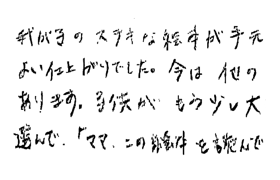 我が子のステキな絵本が手元
よい仕上がりでした。今は他の
あります。子供がもう少し大
選んで、「ママ、この絵本を読んで